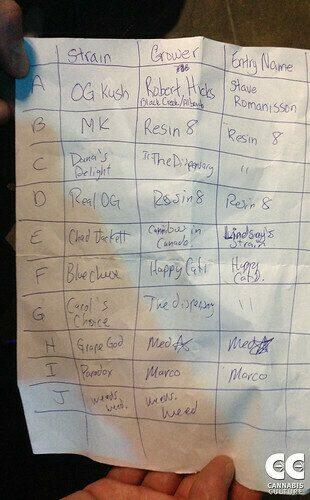 Strain Grower Entry Name
A OG Kush Robert Hicks Steve
Black Creek Romanisson
B MK Resin 8 Resin 8
C Delight The Dispensary "
D Real OG Resin 8 Resin 8
E Chad in Lindsay's
Canada Strain
F Happy Happy
G Carol's The "
Choice
H Grape God Med Med
I Paradox Marco Marco
J weeds weeds
weed weed
CC
CANNABIS
CULTURE